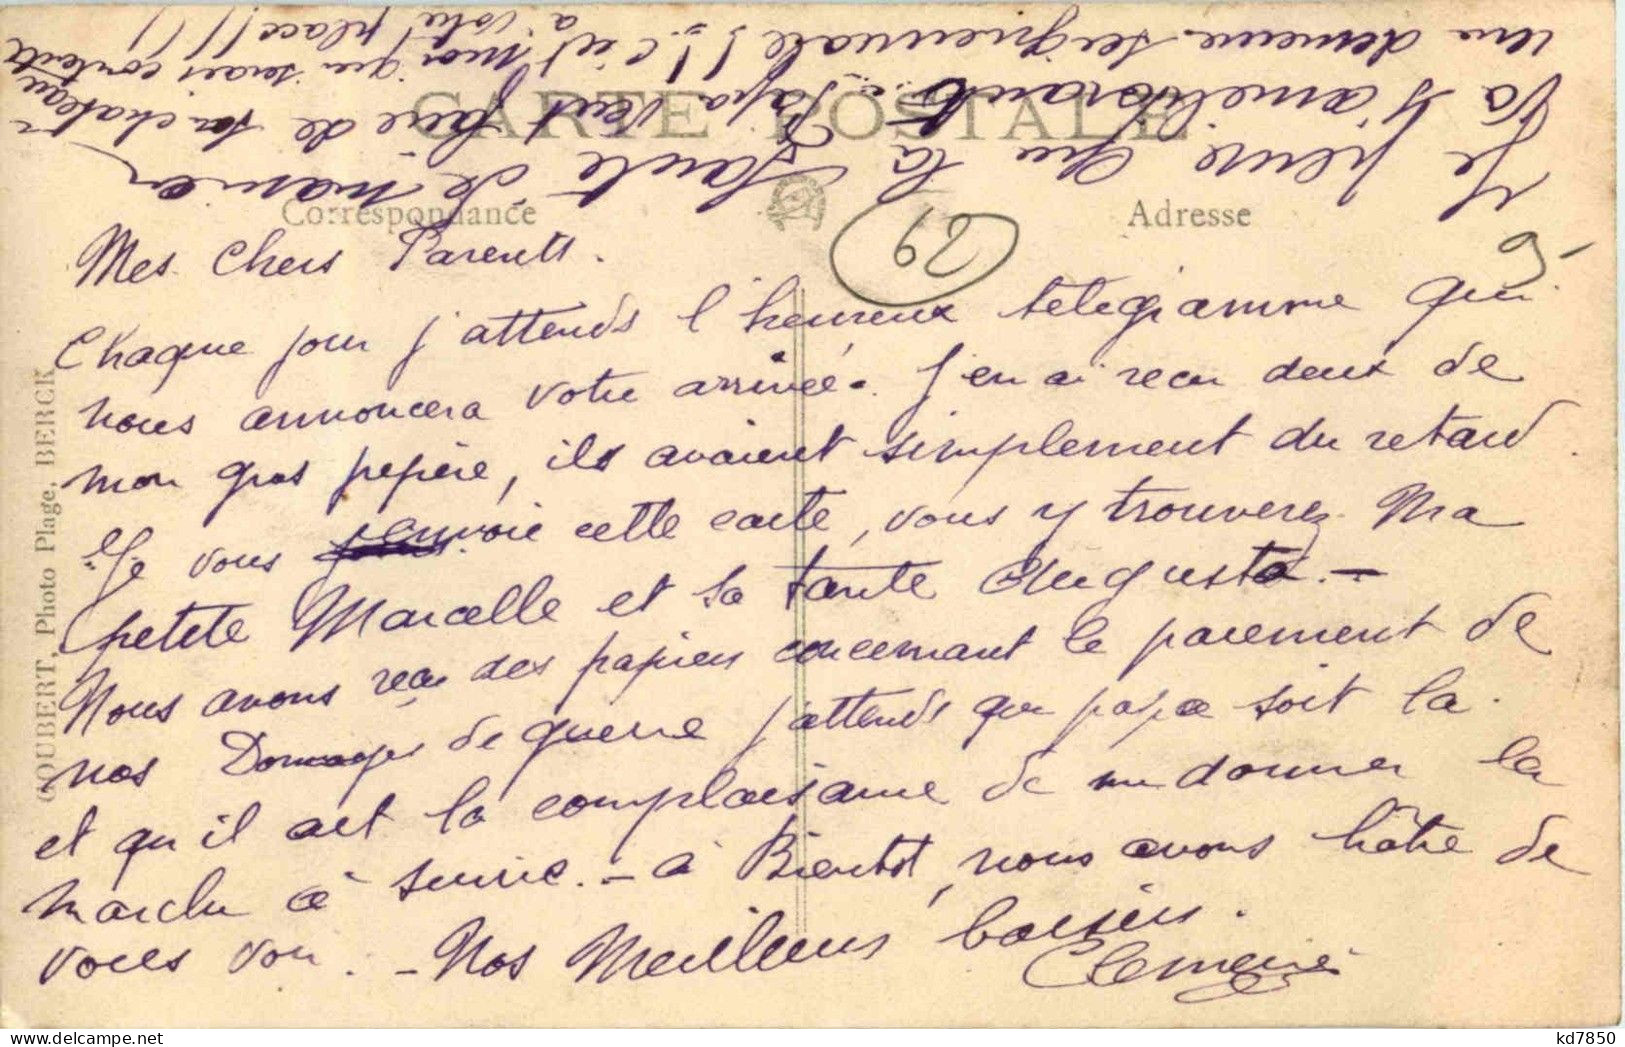 CARTE POSTALE
Correspondance
Adresse
29
Mes Chers Parents.
Chaque jour j'attends l'heureux télégramme qui
nous annoncera votre arrivée. J'en ai reçu deux de
mon gros pépère, ils avaient simplement du retard.
Je vous envoie cette carte, vous y trouverez Ma
petite Marcelle et sa tante Augusta. -
Nous avons reçu des papiers concernant le paiement de
nos Dommages de guerre j'attends que papa soit là
et qu'il ait la complaisance de me donner la
marche à suivre. - à Bientôt, nous avons hâte de
vous voir. - Nos Meilleurs baisers.
Je pense que la santé de maman
va s'améliorant. Papa veut faire de son château
une demeure seigneuriale!!! c'est moi qui serais contente
à votre place!!!
GOUBERT, Photo Plage, BERCK
kd7850